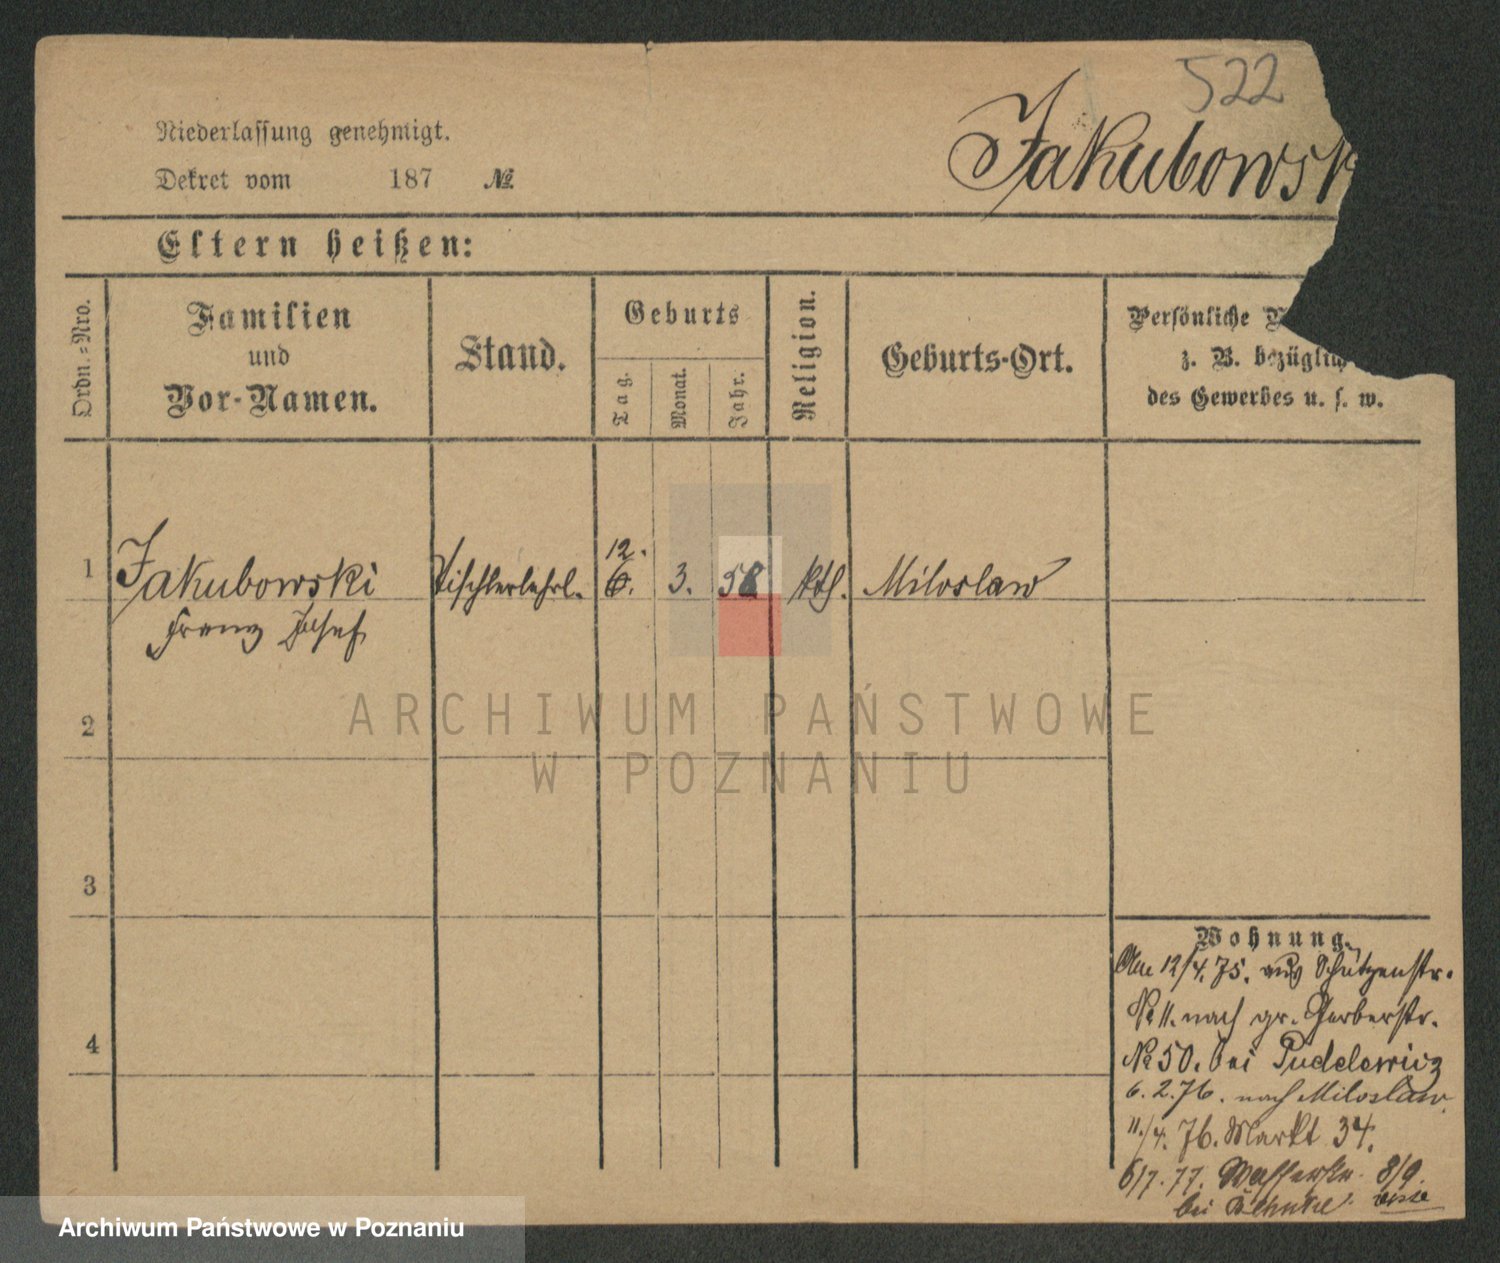 522
Jakubowsk
Niederlassung genehmigt.
Dekret vom 187 №
Eltern heißen:
Ordn.=Nro.
Familien
und
Vor-Namen.
Stand.
Geburts
Tag.
Monat.
Jahr.
Religion.
Geburts-Ort.
Persönliche
z. B. bezüglich
des Gewerbes u. s. w.
12.
1 Jakubowski Tischlerlehrl. 6. 3. 58 kth. Miloslaw
Franz Josef
2
3
4
ARCHIWUM PAŃSTWOWE
W POZNANIU
Wohnung.
Am 12/4.75. aus Schützenstr.
№ 11. nach gr. Gerberstr.
№ 50. bei Pudelewicz
6.2.76. nach Miloslaw.
11./4. 76. Markt 34.
6/7. 77. Wasserstr. 8/9.
bei
Archiwum Państwowe w Poznaniu